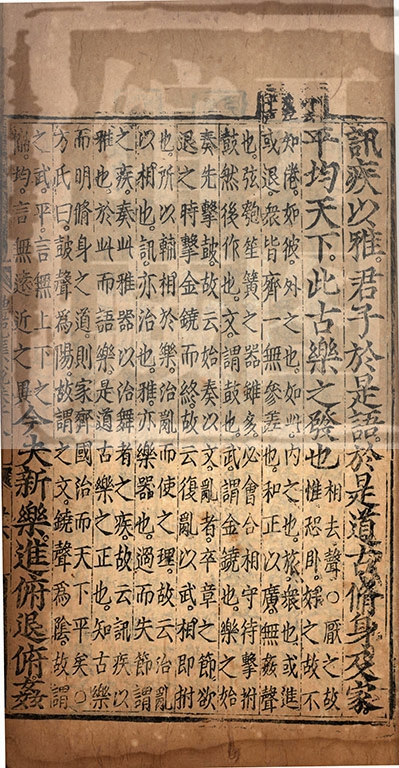 訊疾以雅君子於是語於是道古脩身及家
平均天下此古樂之發也相去聲○厭之故
惟恐卧好之故不
知倦如彼外之也如此內之也旅衆也或進
或退衆皆齊一無參差也和正以廣無姦聲
也弦匏笙簧之器雖多必會合相守待擊拊
鼓然後作也文謂鼓也武謂金鐃也樂之始
奏先擊鼓故云始奏以文亂者卒章之節欲
退之時擊金鐃而終故云復亂以武相即拊
也所以輔相於樂治亂而使之理故云治亂
以相也訊亦治也雅亦樂器也過而失節謂
之疾奏此雅器以治舞者之疾故云訊疾以
雅也於此而語樂是道古樂之正也知古樂
而明脩身之道則家齊國治而天下平矣○
方氏曰鼓聲為陽故謂之文鐃聲為陰故謂
之武平言無上下之
偏均言無遠近之異今夫新樂進俯退俯姦